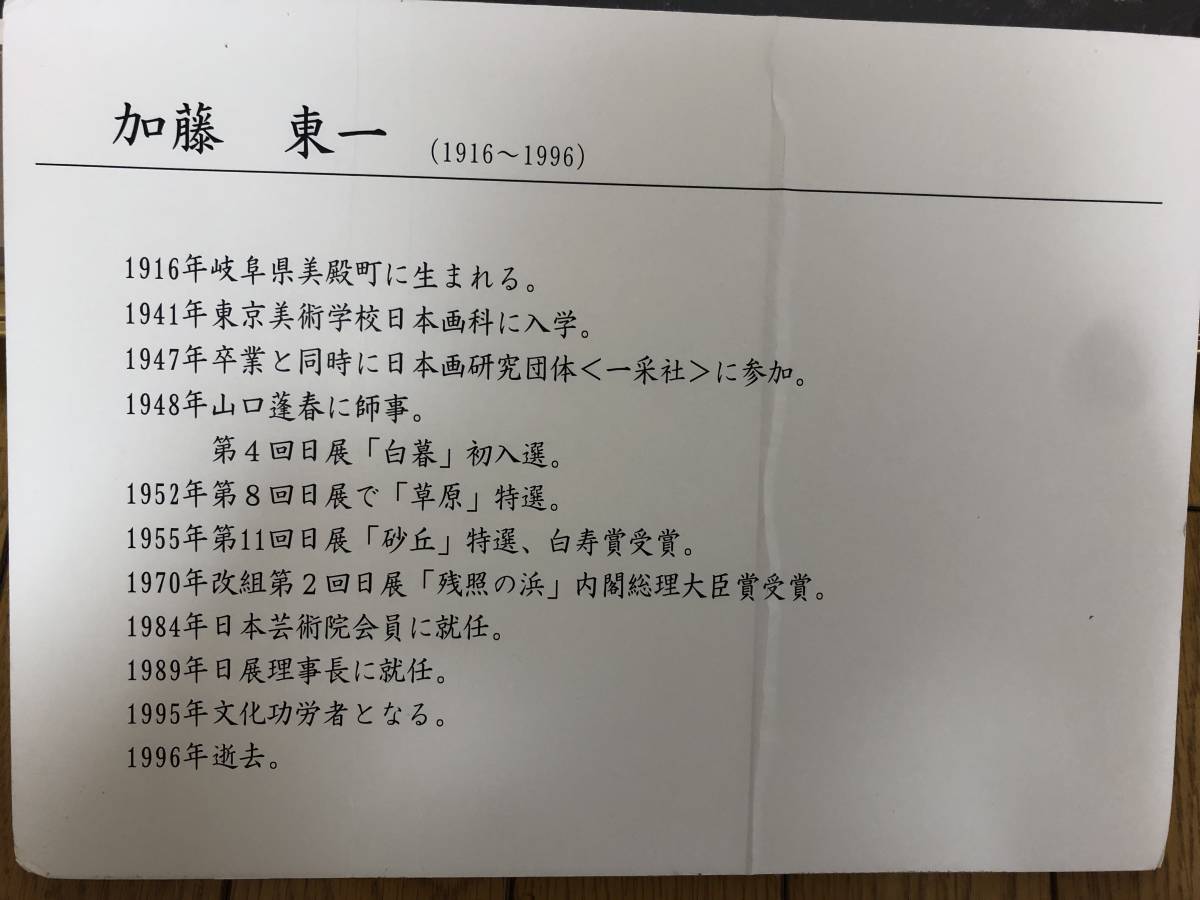 加藤　東一　(1916～1996)
1916年岐阜県美殿町に生まれる。
1941年東京美術学校日本画科に入学。
1947年卒業と同時に日本画研究団体＜一采社＞に参加。
1948年山口蓬春に師事。
第４回日展「白暮」初入選。
1952年第８回日展で「草原」特選。
1955年第11回日展「砂丘」特選、白寿賞受賞。
1970年改組第２回日展「残照の浜」内閣総理大臣賞受賞。
1984年日本芸術院会員に就任。
1989年日展理事長に就任。
1995年文化功労者となる。
1996年逝去。